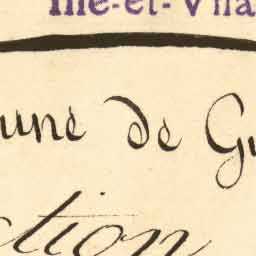 Ille-et-Vila
une de Gu
ction